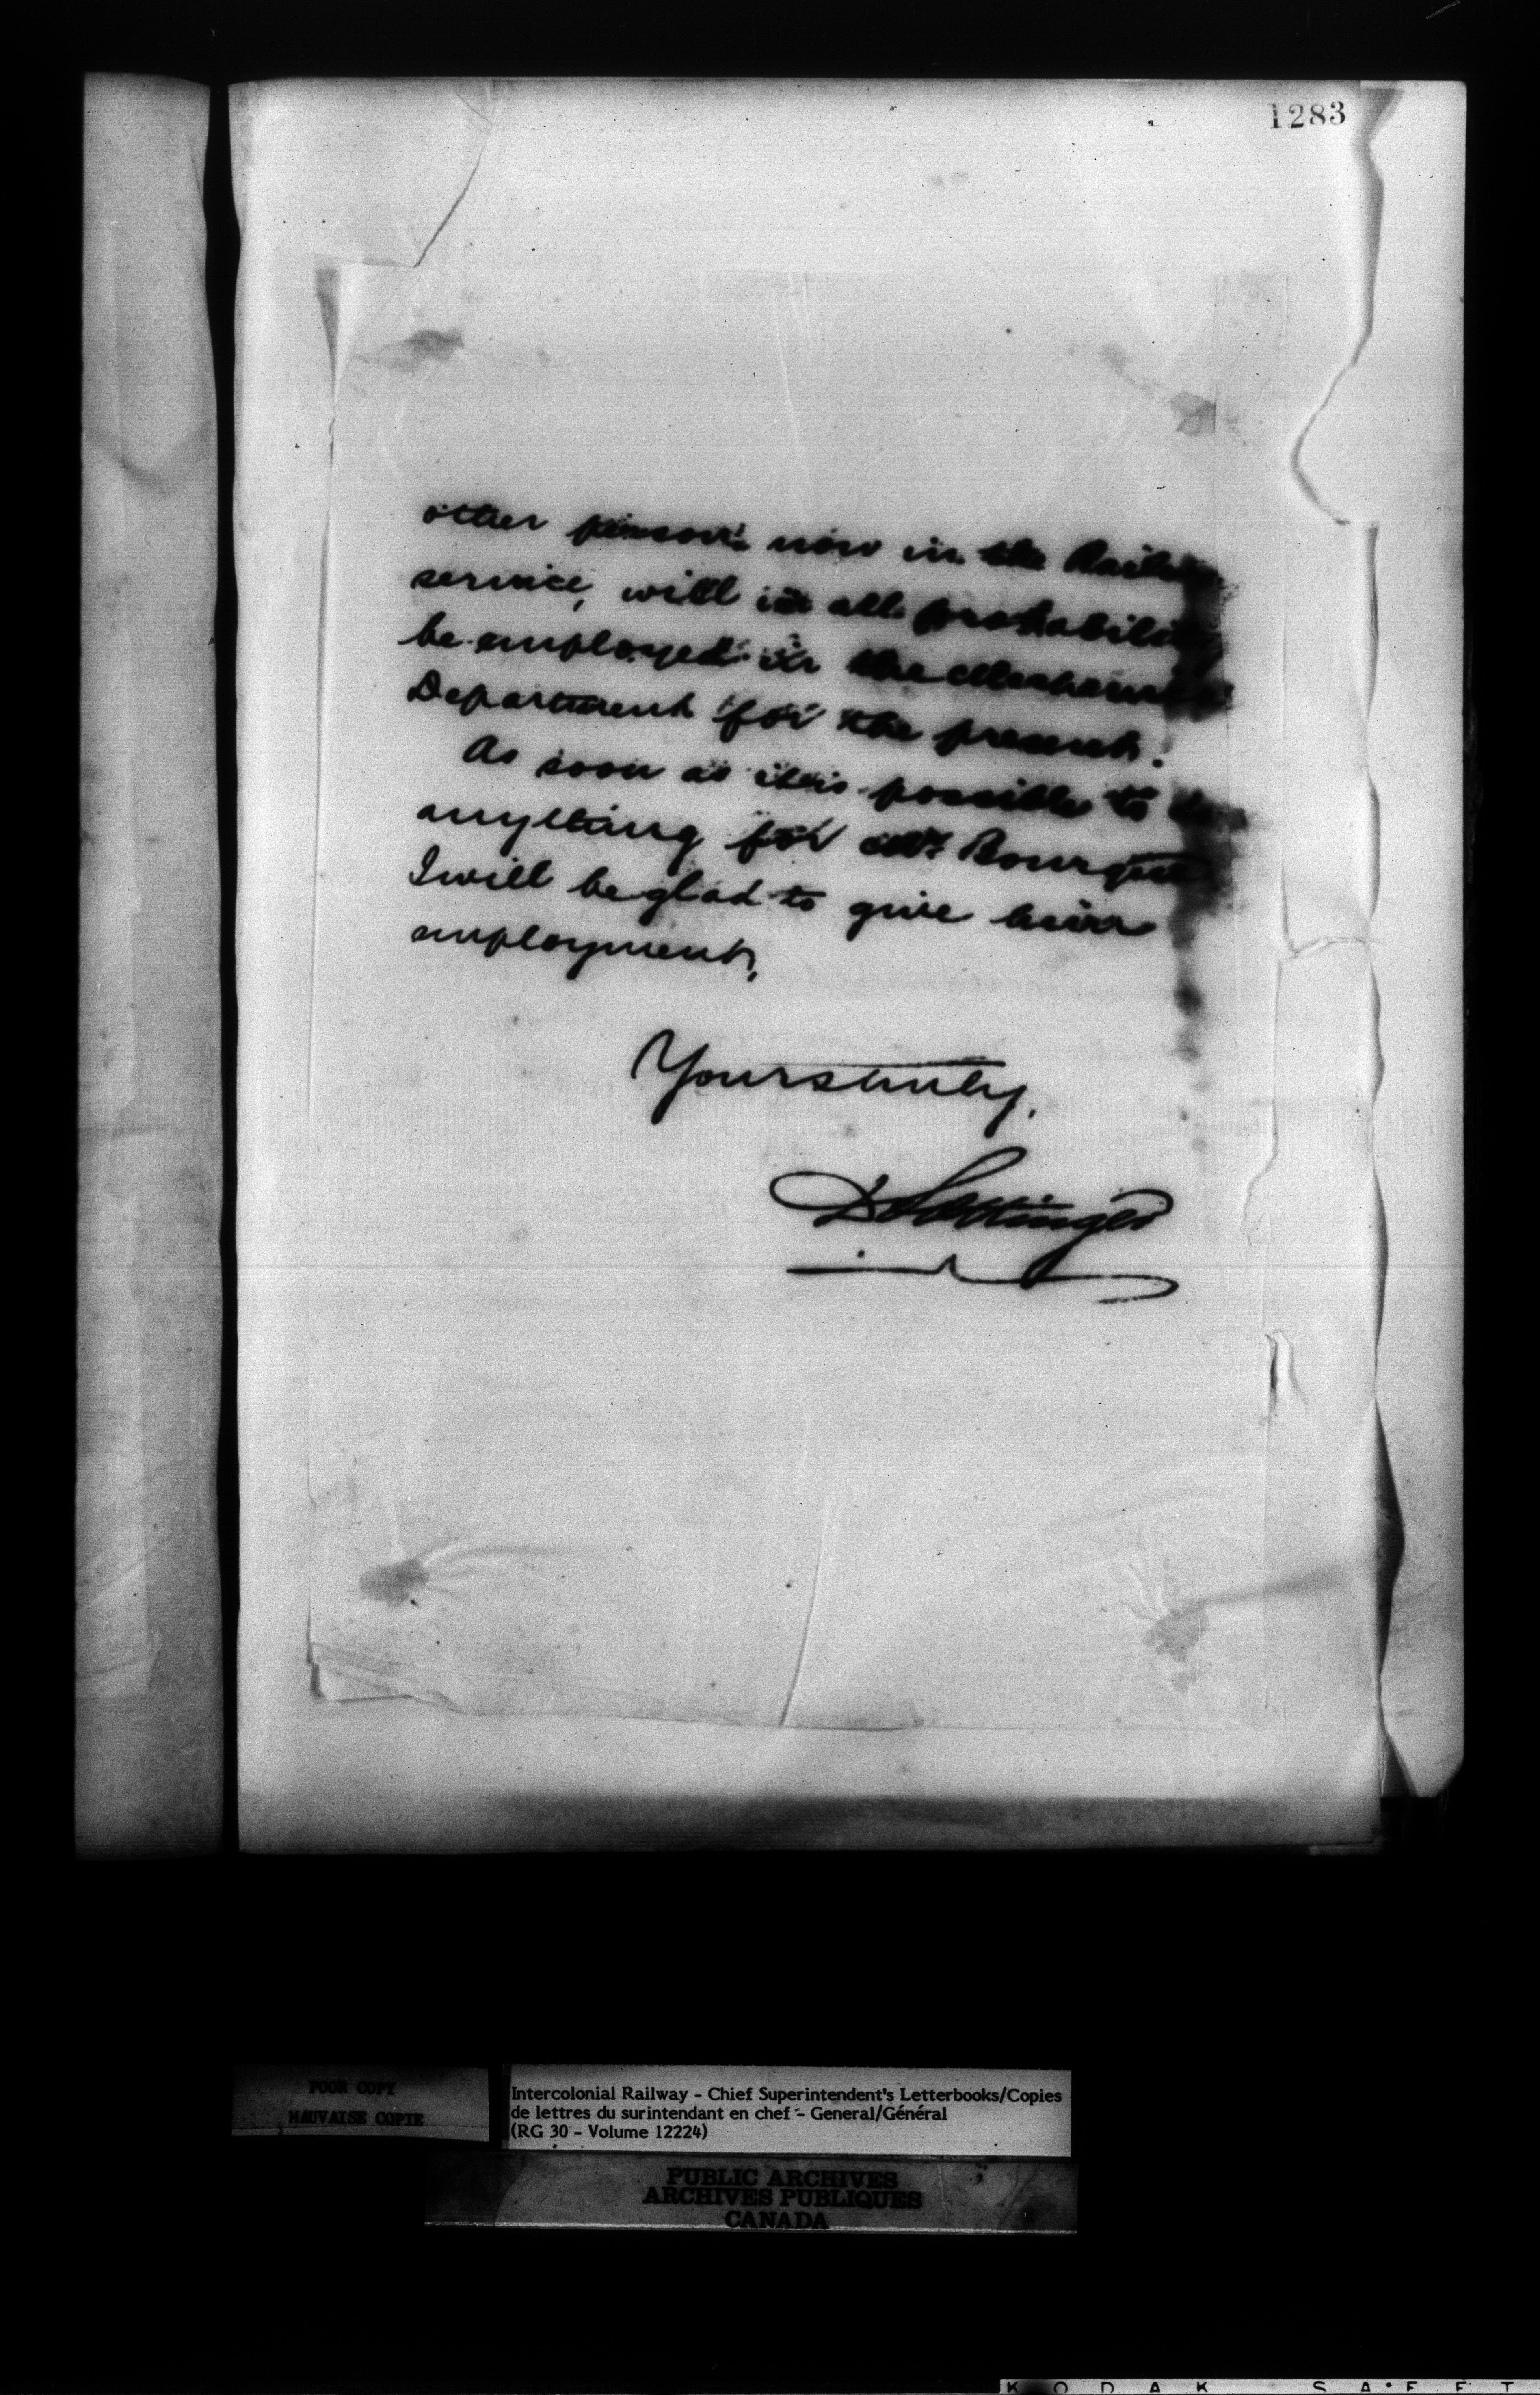 1283
other persons now in the Railway
service, will in all probability
be employed in the Mechanical
Department for the present.
As soon as it is possible to do
anything for Mr Bourque
I will be glad to give him
employment.
Yours truly,
D Pottinger
POOR COPY
MAUVAISE COPIE
Intercolonial Railway - Chief Superintendent's Letterbooks/Copies
de lettres du surintendant en chef - General/Général
(RG 30 - Volume 12224)
PUBLIC ARCHIVES
ARCHIVES PUBLIQUES
CANADA
KODAK SAFET